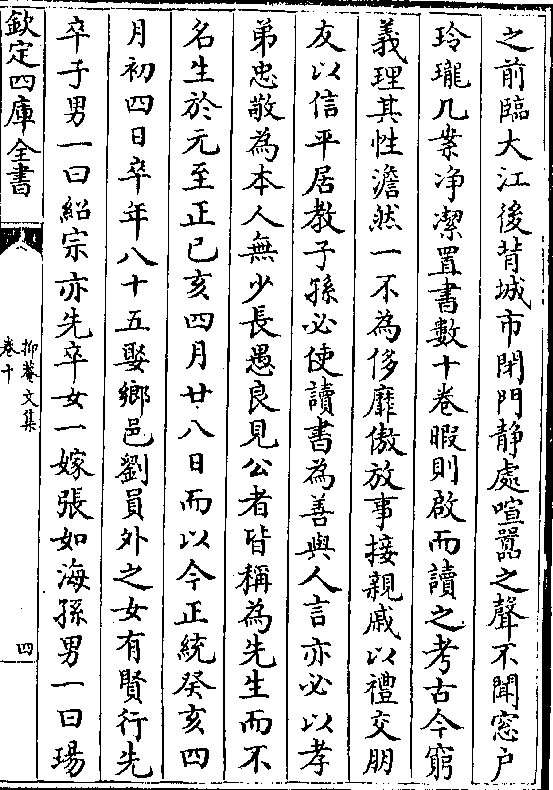 之前臨大江後背城市閉門静處喧囂之聲不聞窓户
玲瓏几案净潔置書數十卷暇則啟而讀之考古今窮
義理其性澹然一不為侈靡傲放事接親戚以禮交朋
友以信平居教子孫必使讀書為善與人言亦必以孝
弟忠敬為本人無少長愚良見公者皆稱為先生而不
名生於元至正已亥四月廿八日而以今正統癸亥四
月初四日卒年八十五娶鄉邑劉員外之女有賢行先
卒子男一曰紹宗亦先卒女一嫁張如海孫男一曰瑒
欽定四庫全書
抑菴文集
卷十
四